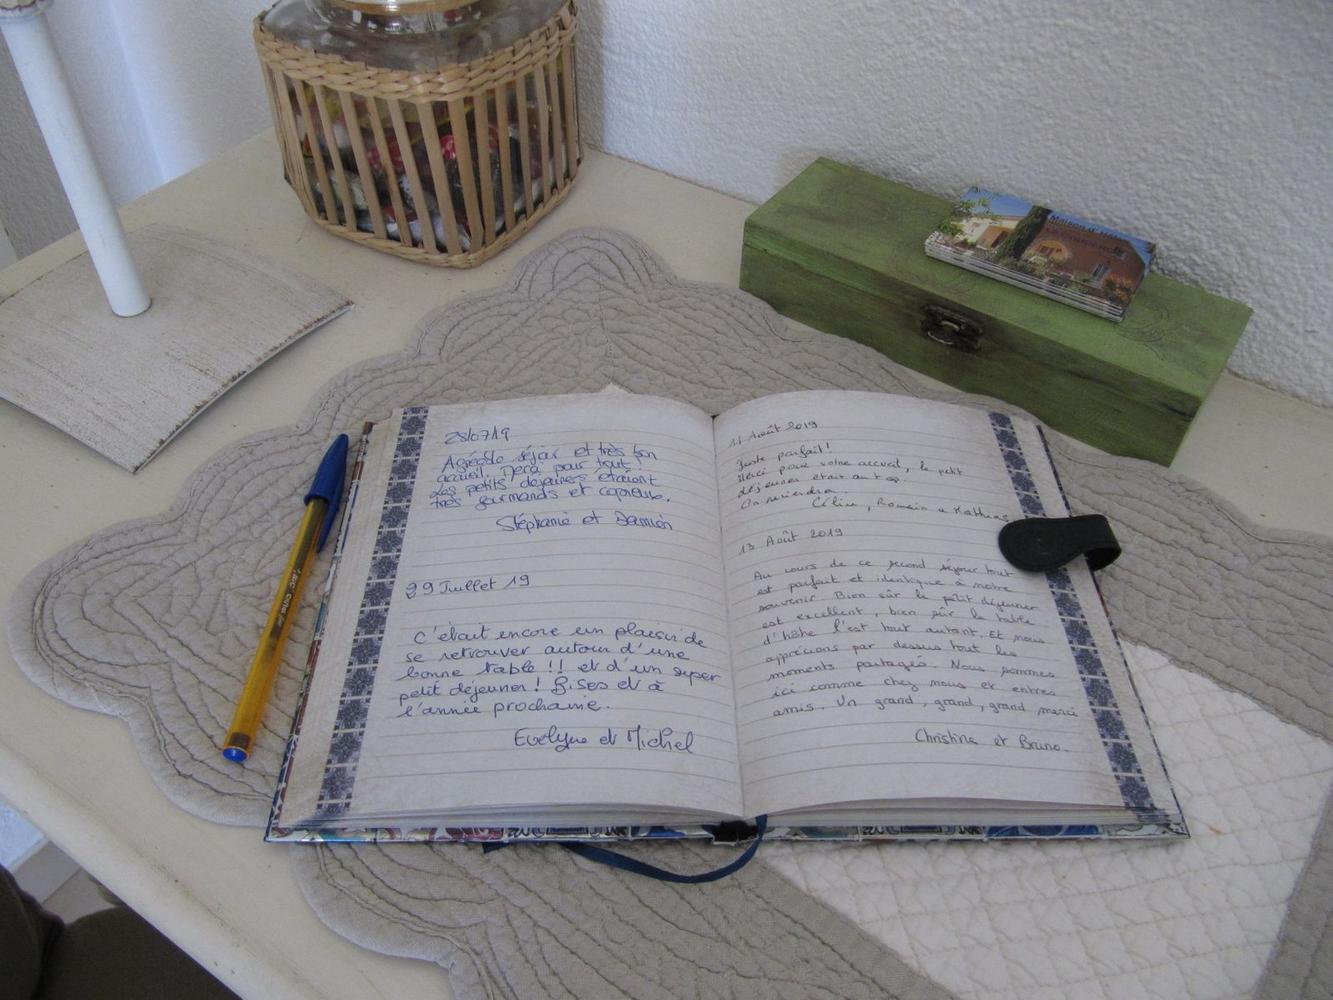 28/07/19
Agréable séjour et très bon
accueil. Merci pour tout !
Les petits déjeuners étaient
très gourmands et copieux.
Stéphanie et Damien
29 Juillet 19
C'était encore un plaisir de
se retrouver autour d'une
bonne table !! et d'un super
petit déjeuner ! Bises et à
l'année prochaine.
Evelyne et Michel
11 Août 2019
Juste parfait !
Merci pour votre accueil, le petit
déjeuner était au top.
On reviendra.
Céline, Romain et
13 Août 2019
Au cours de ce second séjour tout
est parfait et identique à notre
souvenir. Bien sûr le petit déjeuner
est excellent, bien sûr la table
d'hôte l'est tout autant. Et nous
apprécions par dessus tout les
moments partagés. Nous sommes
ici comme chez nous et entres
amis. Un grand, grand, grand merci
Christine et Bruno.
BIC Cristal